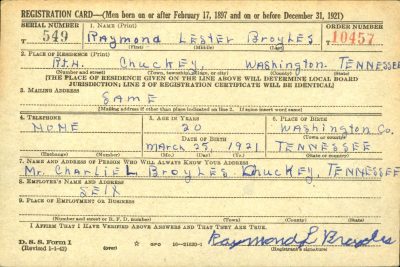 REGISTRATION CARD—(Men born on or after February 17, 1897 and on or before December 31, 1921)
SERIAL NUMBER 1. NAME (Print) ORDER NUMBER
T 549 Raymond Lester Broyles T 10457
(First) (Middle) (Last)
2. PLACE OF RESIDENCE (Print)
Rt.4. Chuckey, Washington TENNESSEE
(Number and street) (Town, township, village, or city) (County) (State)
[THE PLACE OF RESIDENCE GIVEN ON THE LINE ABOVE WILL DETERMINE LOCAL BOARD
JURISDICTION; LINE 2 OF REGISTRATION CERTIFICATE WILL BE IDENTICAL]
3. MAILING ADDRESS
SAME
[Mailing address if other than place indicated on line 2. If same insert word same]
4. TELEPHONE 5. AGE IN YEARS 6. PLACE OF BIRTH
NONE 20 Washington Co.
DATE OF BIRTH (Town or county)
March 25, 1921 TENNESSEE
(Exchange) (Number) (Mo.) (Day) (Yr.) (State or country)
7. NAME AND ADDRESS OF PERSON WHO WILL ALWAYS KNOW YOUR ADDRESS
Mr. Charlie L Broyles Chuckey, TENNESSEE
8. EMPLOYER'S NAME AND ADDRESS
SELF
9. PLACE OF EMPLOYMENT OR BUSINESS
(Number and street or R. F. D. number) (Town) (County) (State)
I AFFIRM THAT I HAVE VERIFIED ABOVE ANSWERS AND THAT THEY ARE TRUE.
D. S. S. Form 1
(Revised 1-1-42) GPO 16—21630-1 Raymond L Broyles